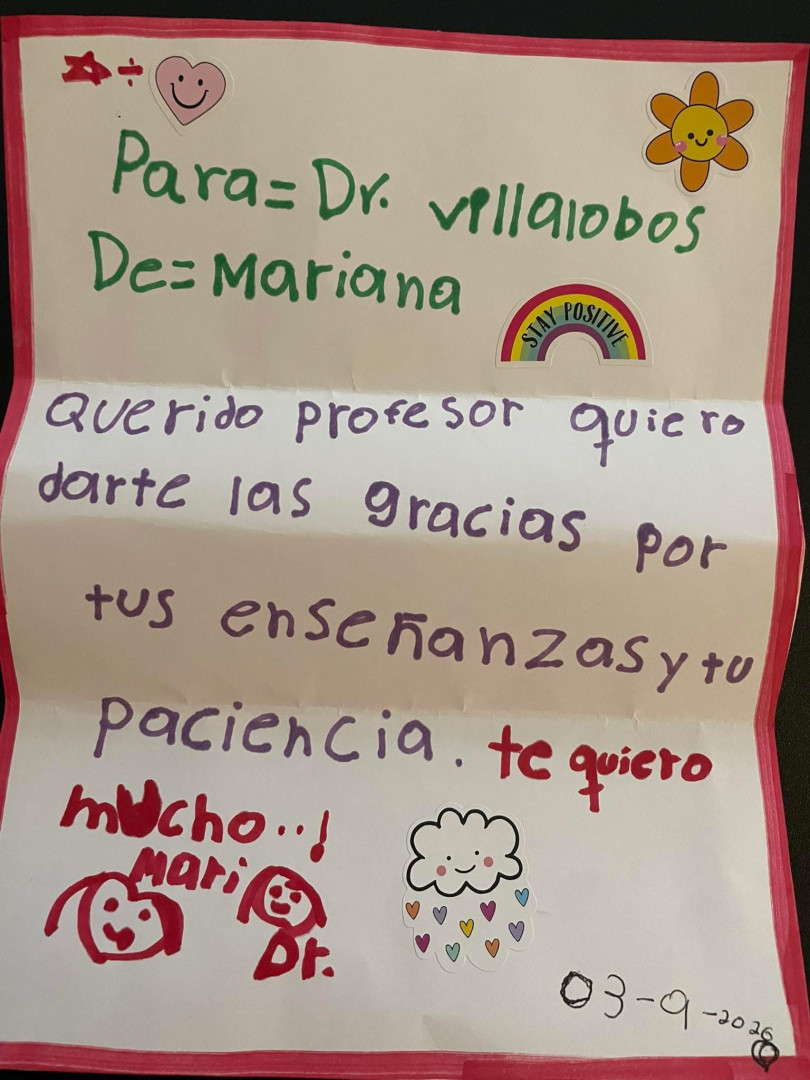 Para= Dr. villalobos
De= Mariana
STAY POSITIVE
Querido profesor quiero
darte las gracias por
tus enseñanzas y tu
paciencia. te quiero
mucho..!
Mari
Dr.
03-9-2026